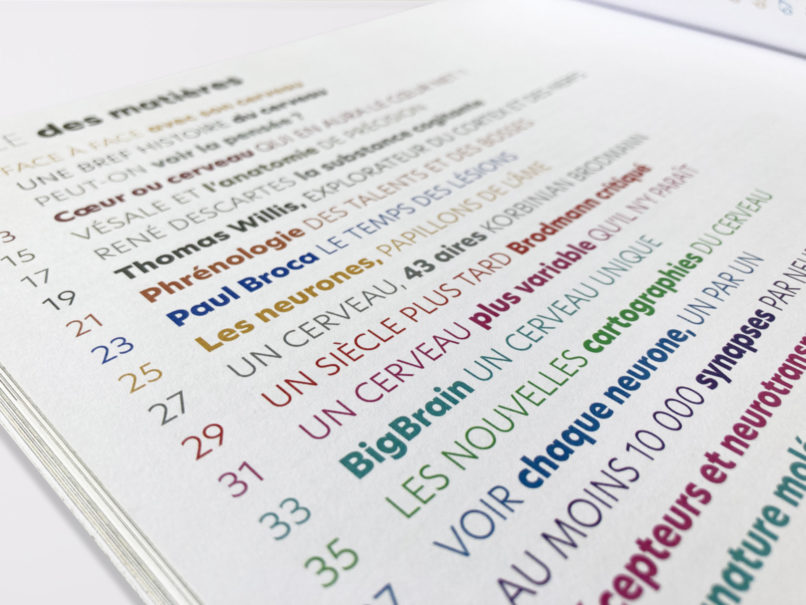 LE des matières
FACE À FACE avec son cerveau
UNE BREF HISTOIRE du cerveau
PEUT-ON voir la pensée ?
3 Cœur ou cerveau QUI EN AURA LE CŒUR NET ?
15 VÉSALE ET l'anatomie DE PRÉCISION
17 RENÉ DESCARTES la substance cogitante
19 Thomas Willis, EXPLORATEUR DU CORTEX ET DES NERFS
21 Phrénologie DES TALENTS ET DES BOSSES
23 Paul Broca LE TEMPS DES LÉSIONS
25 Les neurones, PAPILLONS DE L'ÂME
27 UN CERVEAU, 43 aires KORBINIAN BRODMANN
29 UN SIÈCLE PLUS TARD Brodmann critiqué
31 UN CERVEAU plus variable QU'IL N'Y PARAÎT
33 BigBrain UN CERVEAU UNIQUE
35 LES NOUVELLES cartographies DU CERVEAU
37 VOIR chaque neurone, UN PAR UN
AU MOINS 10 000 synapses PAR NEU
cepteurs et neurotransm
nature molé